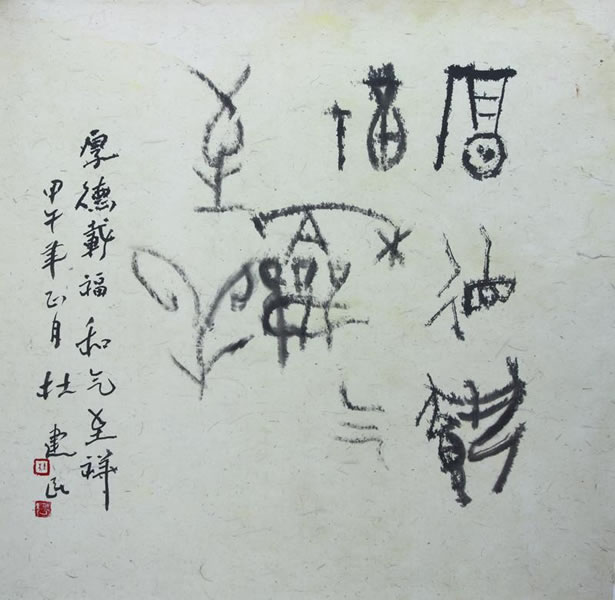 厚德載
福和气
至祥
厚德載福和气至祥
甲午年正月杜建民